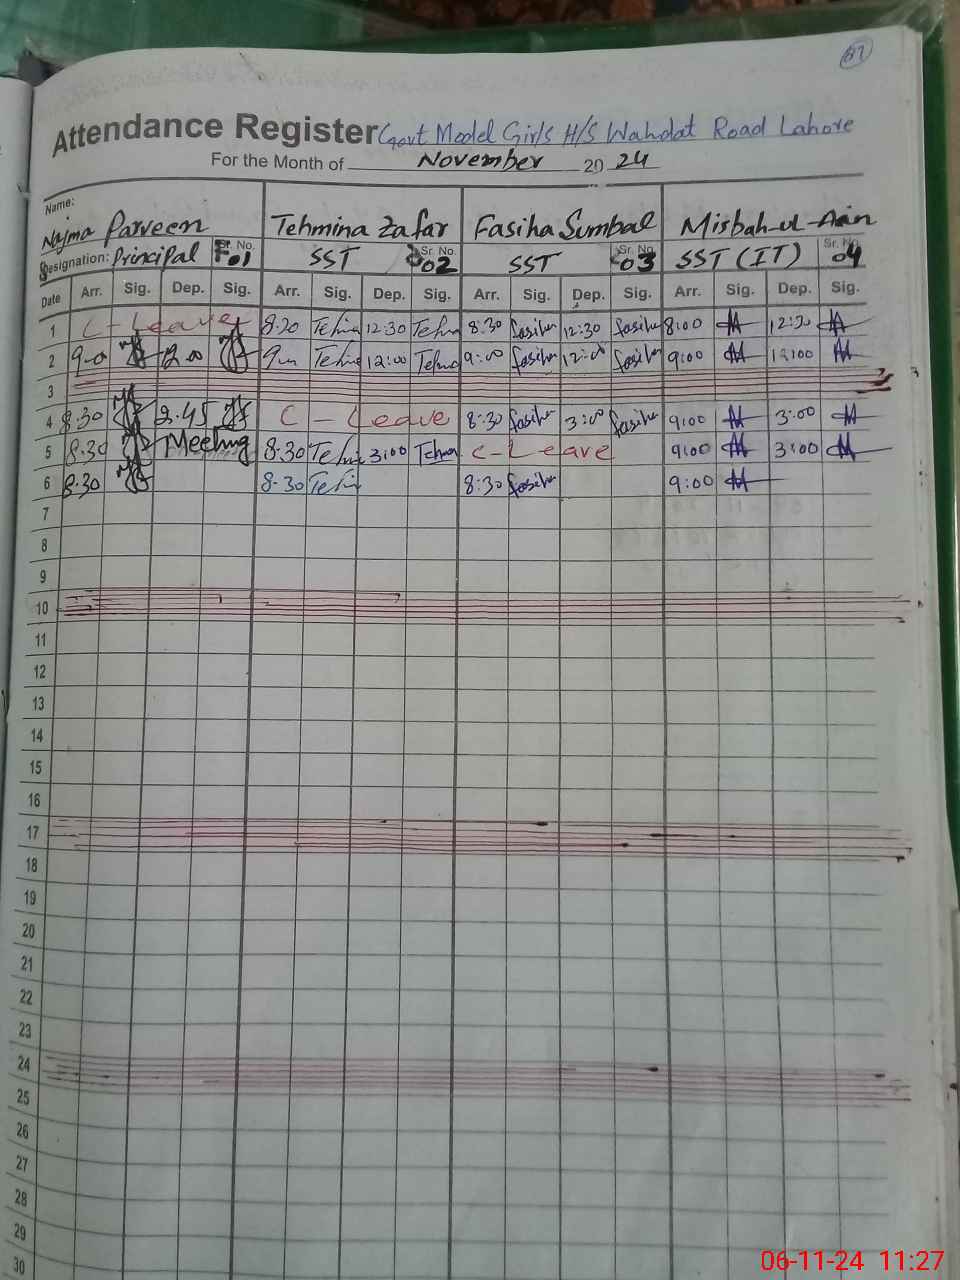 27
Attendance Register Govt Model Girls H/S Wahdat Road Lahore
For the Month of November 20 24
Name: Najma Parveen Tehmina Zafar Fasiha Sumbal Misbah-ul-Ain
Designation: Principal Sr. No. 01 SST Sr. No. 02 SST Sr. No. 03 SST (IT) Sr. No. 04
Date Arr. Sig. Dep. Sig. Arr. Sig. Dep. Sig. Arr. Sig. Dep. Sig. Arr. Sig. Dep. Sig.
1 C-Leave 8:20 Tehmi 12:30 Tehmi 8:30 fasiha 12:30 fasiha 8:00 12:30
2 9-0 12.00 Tehmi 12:00 Tehmi 9:00 fasiha 12:00 fasiha 9:00 12:00
3
4 8:30 2.45 C - Leave 8:30 fasiha 3:00 fasiha 9:00 3:00
5 8:30 Meeting 8:30 Tehmi 3:00 Tehmi C-Leave 9:00 3:00
6 8:30 8:30 Tehmi 8:30 fasiha 9:00
7
8
9
10
11
12
13
14
15
16
17
18
19
20
21
22
23
24
25
26
27
28
29
30
06-11-24 11:27